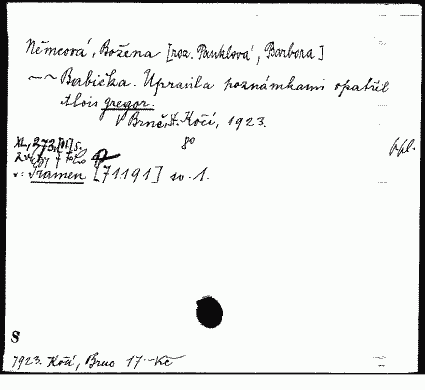 Němcová, Božena [roz. Panklová, Barbora]
~~ Babička. Upravil a poznámkami opatřil
Alois Gregor.
V Brně, A. Kočí, 1923.
8°
ppl.
XL, 273, [01] s.
v: Pramen [71191] sv. 1.
S
1923. Kočí, Brno 17·- Kč